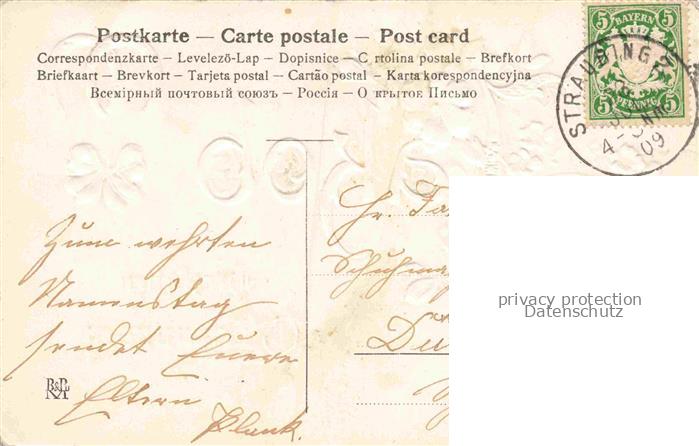 Postkarte — Carte postale — Post card
Correspondenzkarte – Levelező-Lap – Dopisnice – Cartolina postale – Brefkort
Briefkaart – Brevkort – Tarjeta postal – Cartão postal – Karta korespondencyjna
Всемірный почтовый союзъ – Россія – Открытое Письмо
5 BAYERN 5
5 PFENNIG 5
STRAUBING
4-5 NM
09
Zum wehrten
Namenstag
sendet Euere
Eltern
Plank.
Hr.
privacy protection
Datenschutz